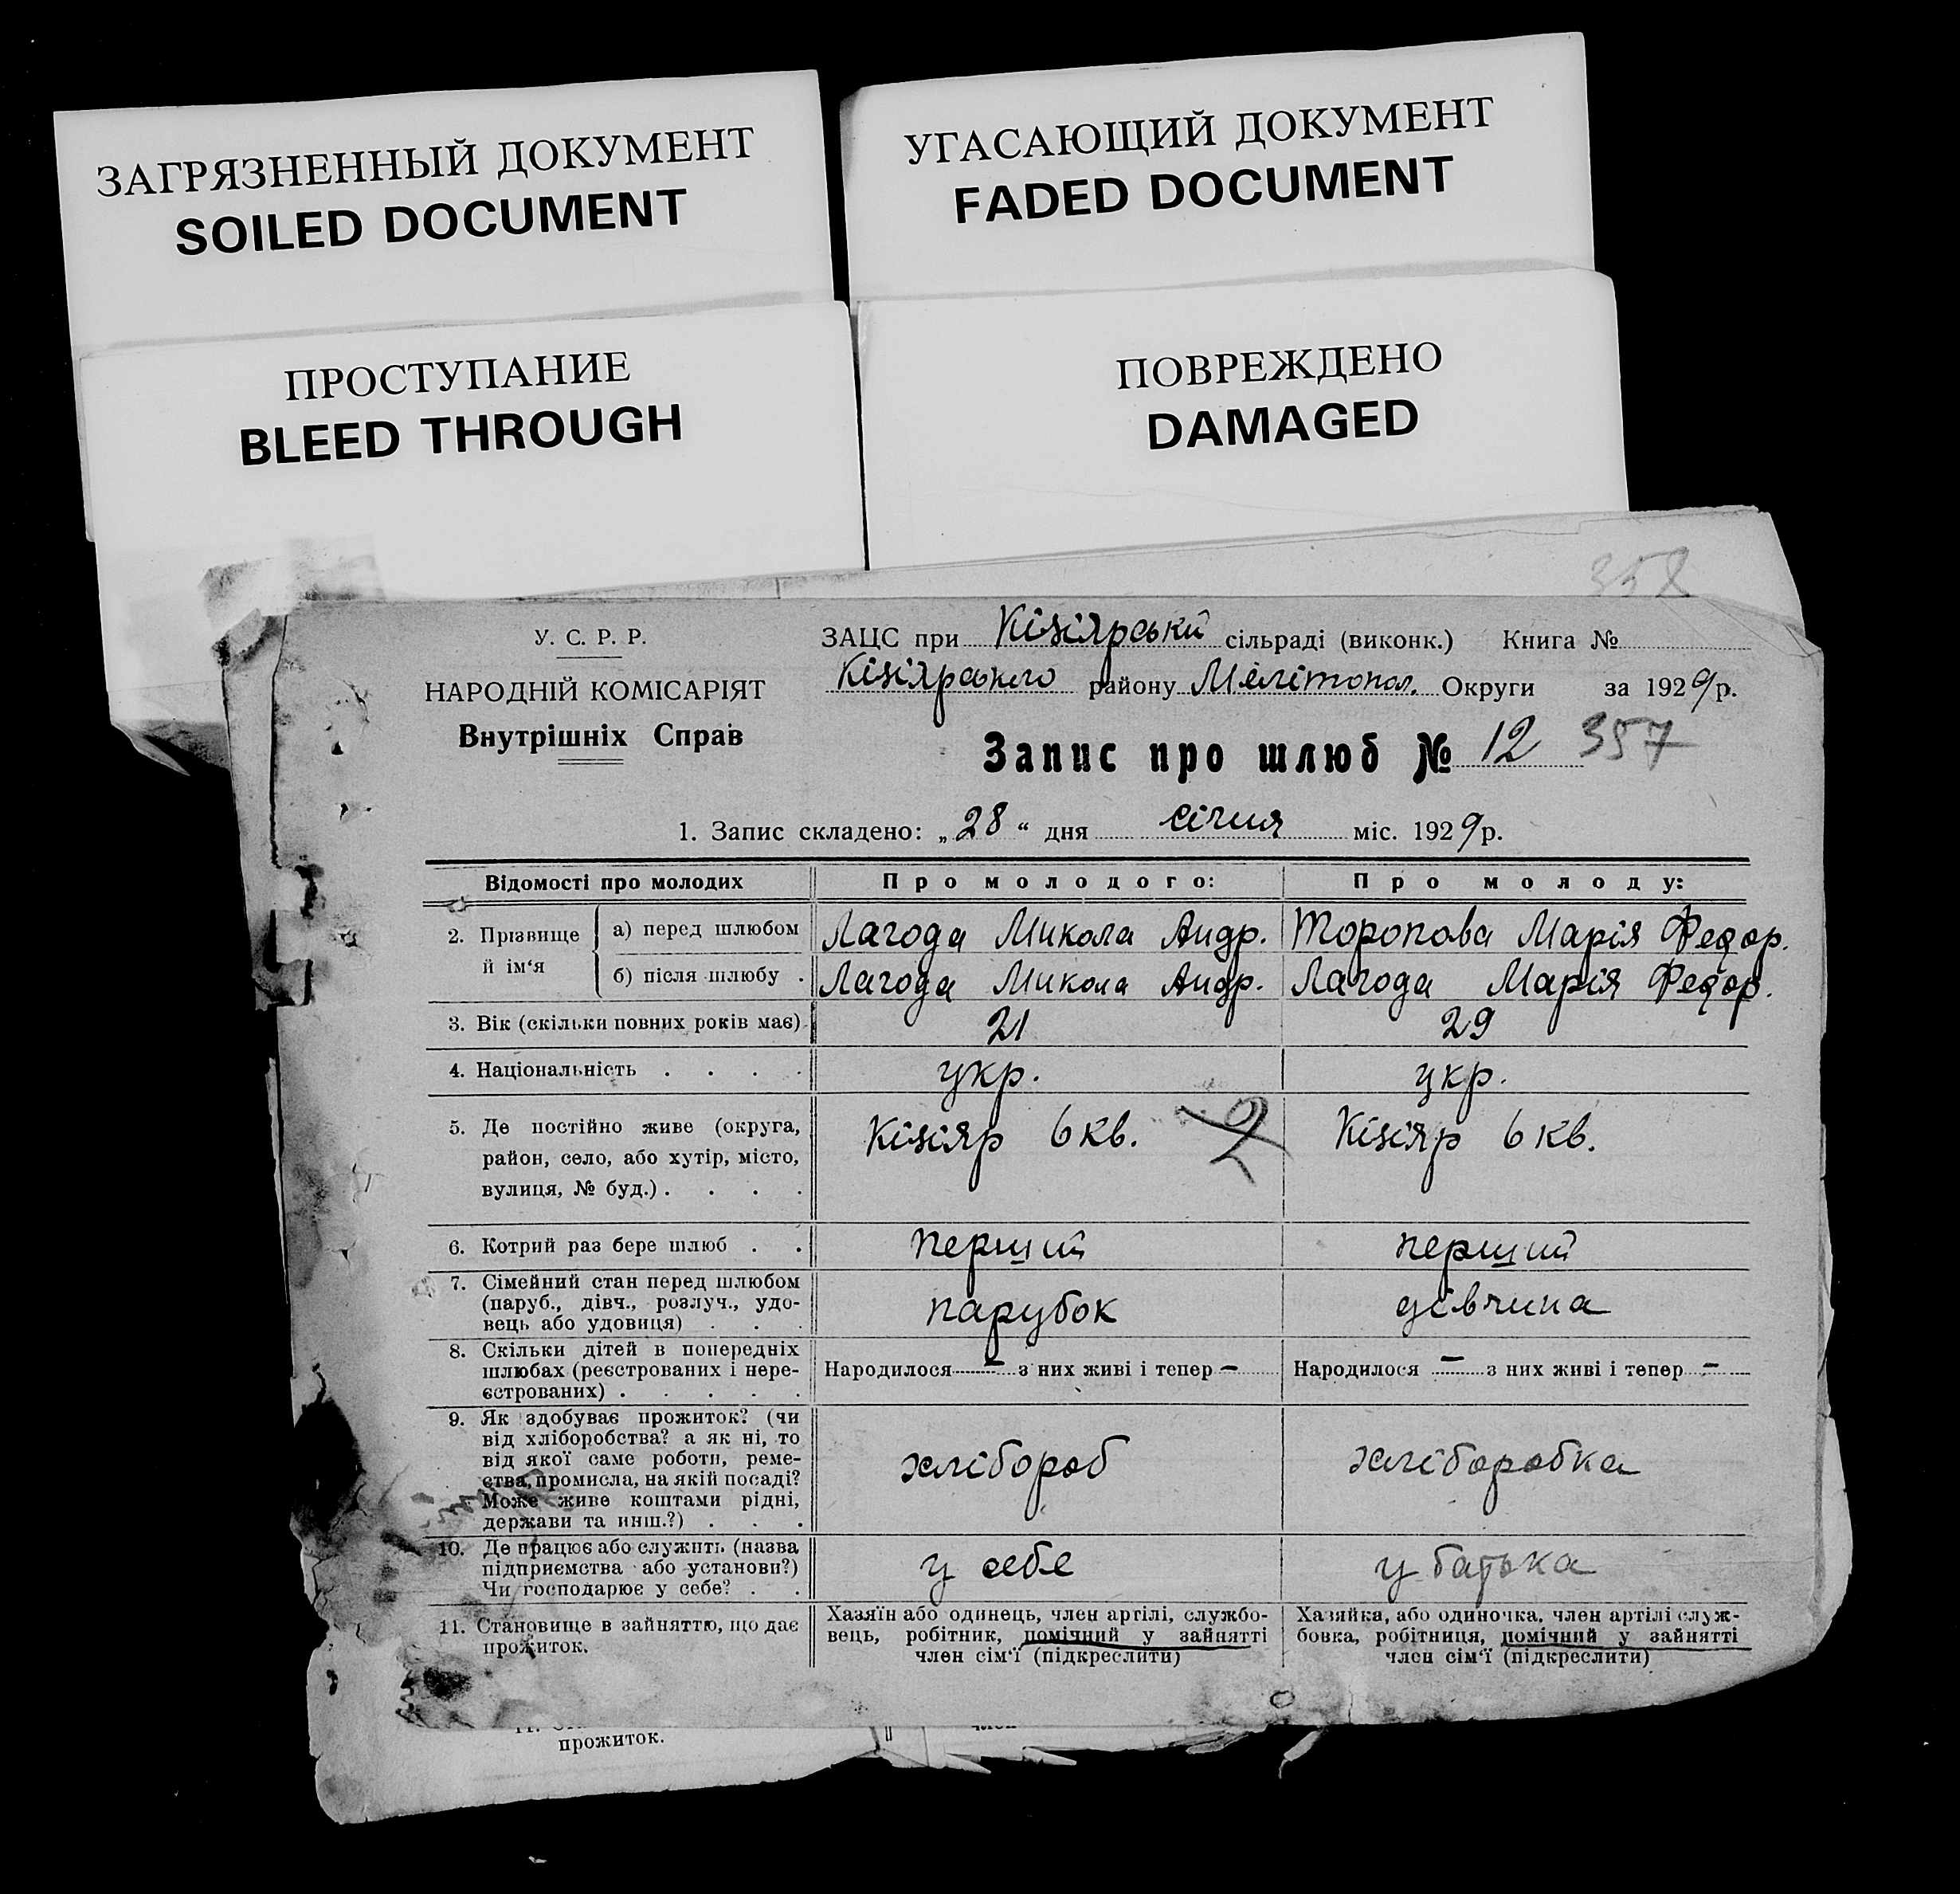 ЗАГРЯЗНЕННЫЙ ДОКУМЕНТ
SOILED DOCUMENT
УГАСАЮЩИЙ ДОКУМЕНТ
FADED DOCUMENT
ПРОСТУПАНИЕ
BLEED THROUGH
ПОВРЕЖДЕНО
DAMAGED
358
У. С. Р. Р.
НАРОДНІЙ КОМІСАРІЯТ
Внутрішніх Справ
ЗАЦС при Кізіярській сільраді (виконк.) Книга №
Кізіярського району Мелітопол. Округи за 1929 р.
Запис про шлюб № 12 357
1. Запис складено: „28“ дня січня міс. 1929 р.
Відомості про молодих Про молодого: Про молоду:
2. Прізвище й ім‘я а) перед шлюбом Лагода Микола Андр. Торопова Марія Федор.
б) після шлюбу . Лагода Микола Андр. Лагода Марія Федор.
3. Вік (скільки повних років має) 21 29
4. Національність . . . . укр. укр.
5. Де постійно живе (округа,
район, село, або хутір, місто,
вулиця, № буд.) . . . .
Кізіяр 6 кв. 2 Кізіяр 6 кв.
6. Котрий раз бере шлюб . . перший перший
7. Сімейний стан перед шлюбом
(паруб., дівч., розлуч., удо-
вець або удовиця) . . .
парубок дівчина
8. Скільки дітей в попередніх
шлюбах (реєстрованих і нере-
єстрованих) . . . . .
Народилося — з них живі і тепер — Народилося — з них живі і тепер —
9. Як здобуває прожиток? (чи
від хліборобства? а як ні, то
від якої саме роботи, реме-
ства, промисла, на якій посаді?
Може живе коштами рідні,
держави та инш.?) . . .
хлібороб хліборобка
10. Де працює або служить (назва
підприємства або установи?)
Чи господарює у себе? . .
у себе у батька
11. Становище в зайняттю, що дає
прожиток.
Хазяїн або одинець, член артілі, службо-
вець, робітник, помічний у зайнятті
член сім‘ї (підкреслити)
Хазяйка, або одиночка, член артілі служ-
бовка, робітниця, помічний у зайнятті
член сім‘ї (підкреслити)
прожиток.